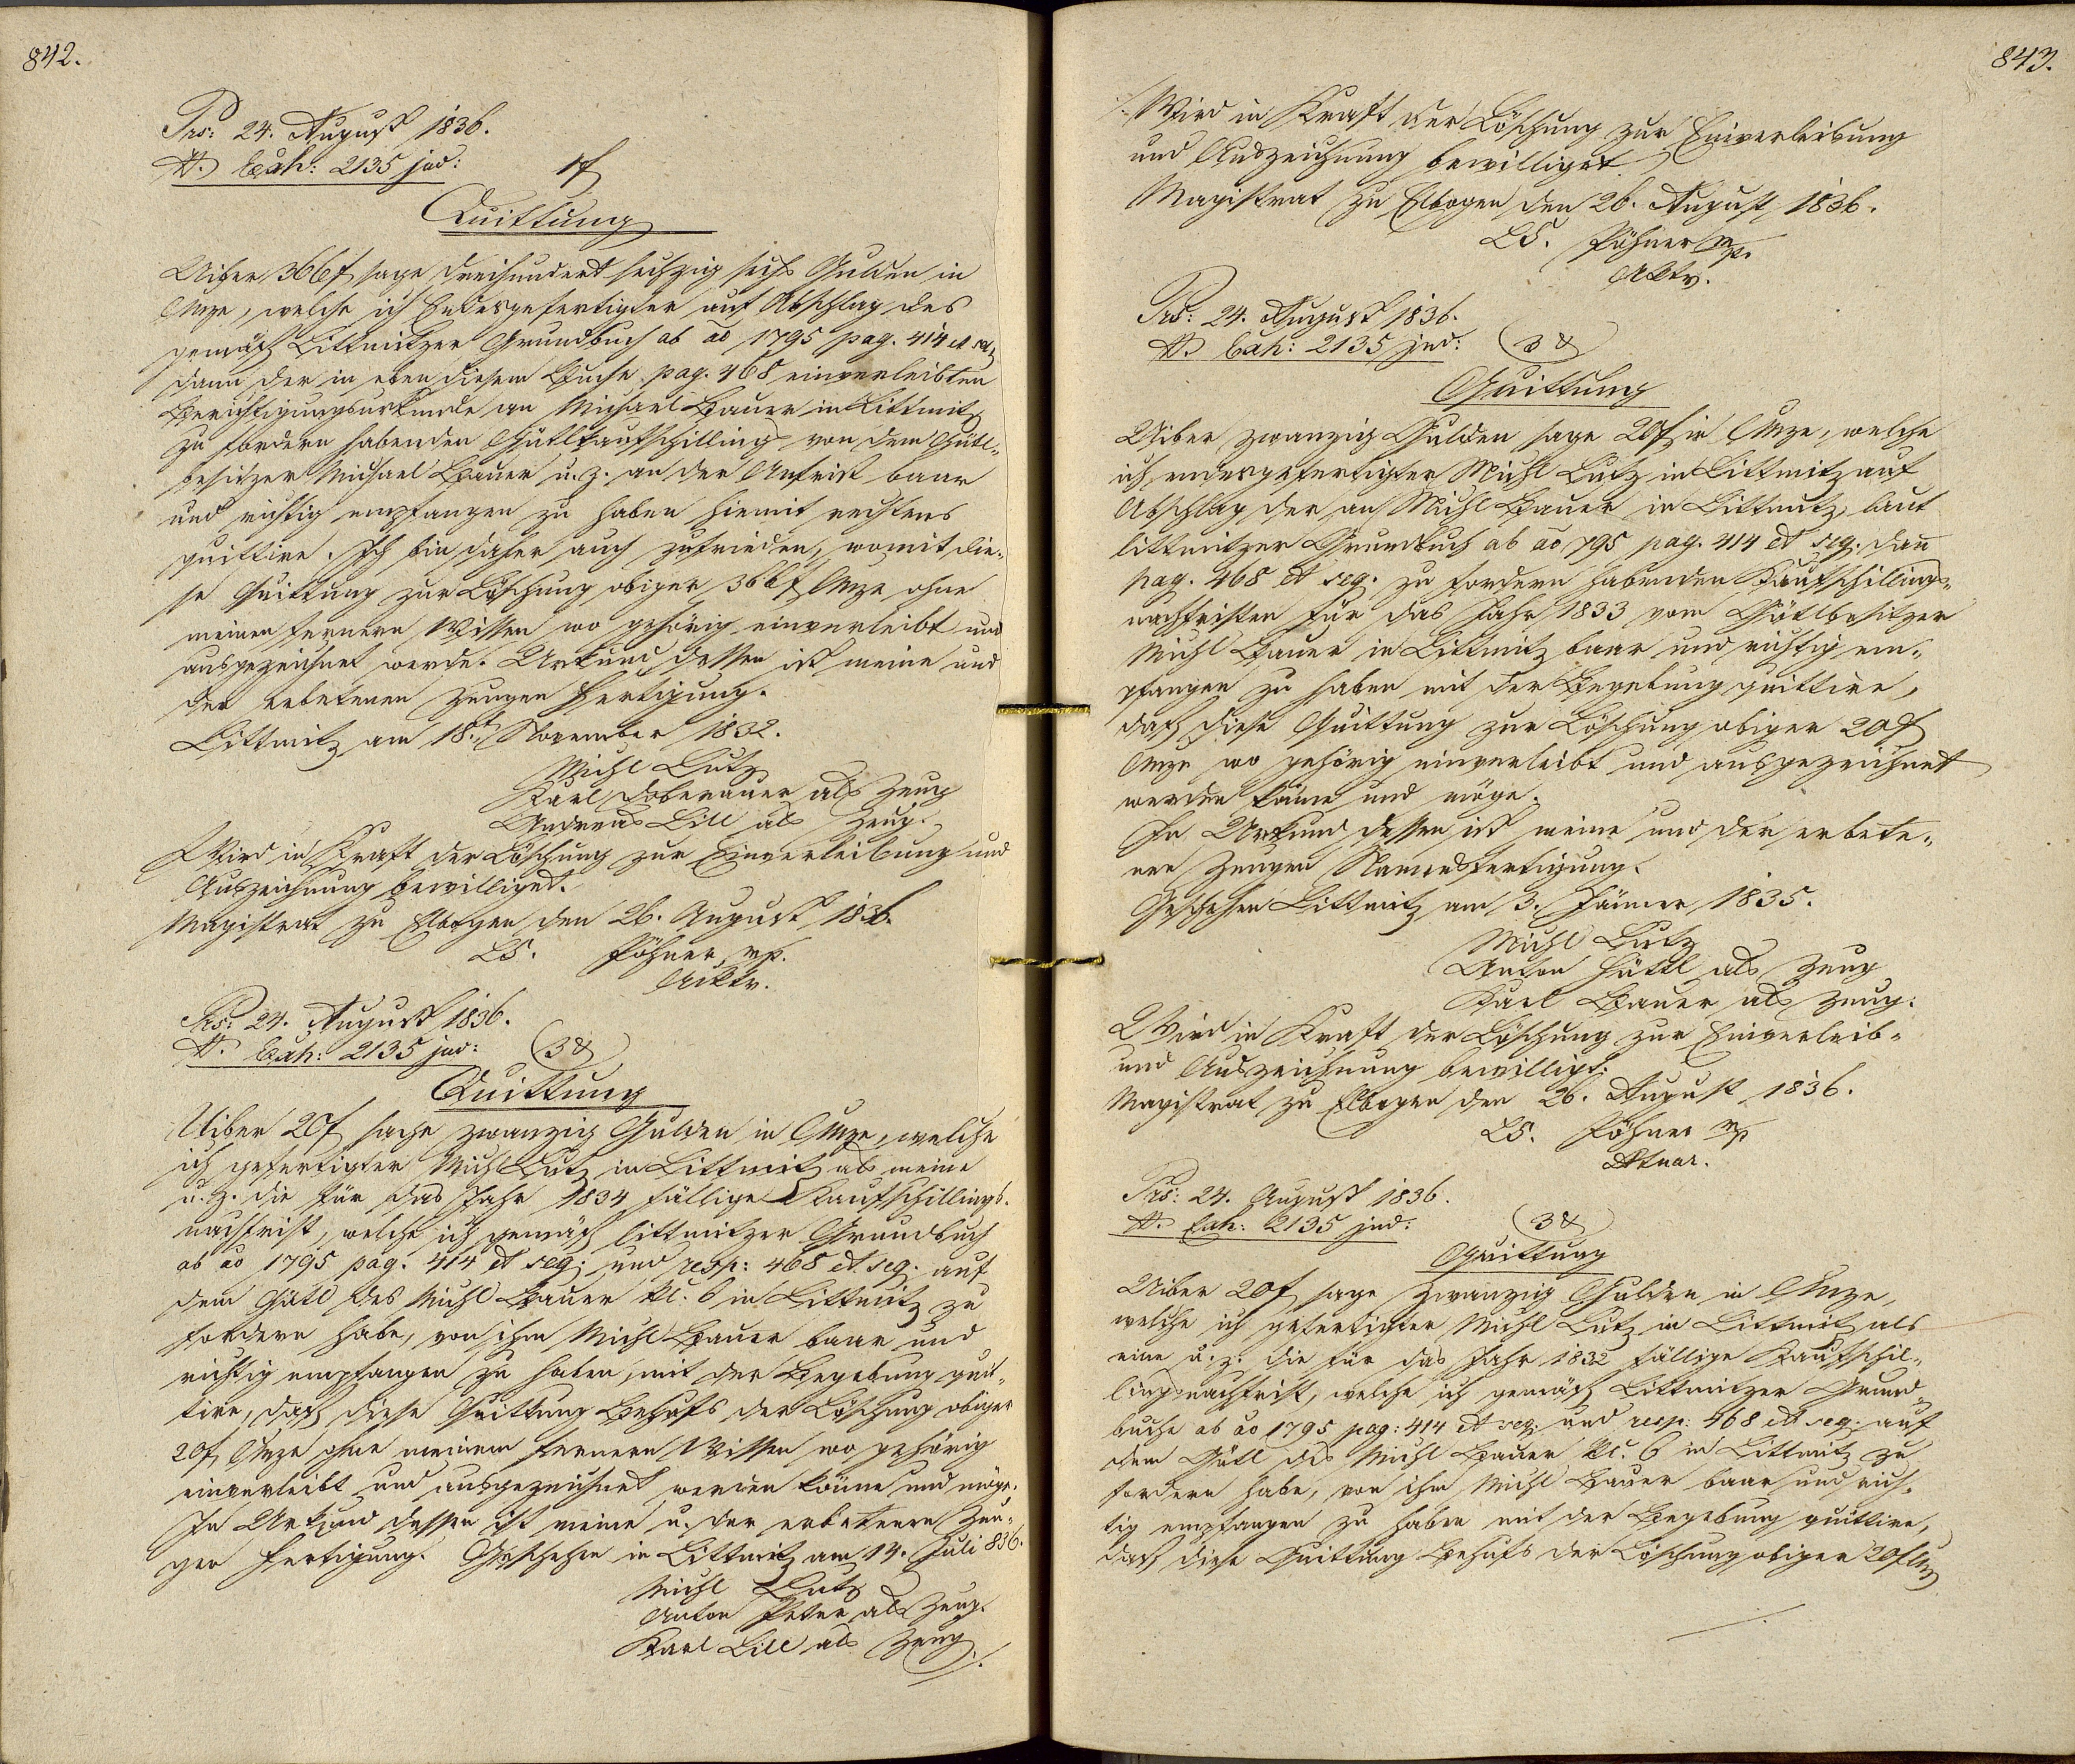 842.
Prs: 24. August 1836.
N. Exh: 2135 jud: 1 f
Quittung
Uiber 366 f sage dreihundert sechzig sechs Gulden in
CMze, welche ich Endesgefertigter auf Abschlag des
gemäß Littmitzer Grundbuch ab ao 1795 pag. 414 et seq
dann der in eben diesem Buche pag. 468 einverleibten
Berichtigungsurkunde an Michael Bauer in Littmitz
zu fordern habenden Gütlkaufschilling von dem Gütl-
besitzer Michael Bauer u. z. an der Anfrist baar
und richtig empfangen zu haben hiemit rechtens
quittire. Ich bin daher auch zufrieden, womit die-
se Quittung zur Löschung obiger 366 f CMze ohne
meinen fernern Wissen wo gehörig einverleibt und
ausgezeichnet werde. Urkund dessen ist meine und
der erbetenen Zeugen Fertigung.
Littmitz am 18t November 1832.
Michl Lutz
Karl Doberauer als Zeug
Andreas Lill als Zeug.
Wird in Kraft der Löschung zur Einverleibung und
Auszeichnung bewilliget.
Magistrat zu Elbogen den 26. August 1836.
LS. Föhner mp.
Aktr.
Prs: 24. August 1836.
N. Exh: 2135 jud: 3 x
Quittung
Uiber 20 f sage zwanzig Gulden in CMze, welche
ich gefertigter Michl Lutz in Littmitz als meine
u. z. die für das Jahr 1834 fällige Kaufschillings-
nachfrist, welche ich gemäß littmitzer Grundbuch
ab ao 1795 pag. 414 et seq. und resp: 468 et seq. auf
dem Gütl des Michl Bauer Nc. 6 in Littmitz zu
fordern habe, von ihm Michl Bauer baar und
richtig empfangen zu haben, mit der Begebung quit-
tire, daß diese Quittung Behufs der Löschung obiger
20 f CMze ohne meinem fernern Wissen wo gehörig
einverleibt und ausgezeichnet werden könne und möge.
In Urkund dessen ist meine u. der erbettenen Zeu-
gen Fertigung. Geschehen in Littmitz am 14. Juli 836.
Michl Lutz
Anton Peter als Zeug.
Karl Lill als Zeug ./.
843.
./. Wird in Kraft der Löschung zur Einverleibung
und Auszeichnung bewilliget.
Magistrat zu Elbogen den 26. August 1836.
LS. Föhner mp.
Aktr.
Prs: 24. August 1836.
N. Exh: 2135 jud: 3 x
Quittung
Uiber zwanzig Gulden sage 20 f in CMze, welche
ich endesgefertigter Michl Lutz in Littmitz auf
Abschlag der an Michl Bauer in Littmitz, laut
littmitzer Grundbuch ab ao 795 pag. 414 et seq. dann
pag. 468 et seq. zu fordern habenden Kaufschillings-
nachfristen für das Jahr 1833 vom Gütlbesitzer
Michl Bauer in Littmitz baar und richtig em-
pfangen zu haben mit der Begebung quittire,
daß diese Quittung zur Löschung obiger 20 f
CMze wo gehörig einverleibt und ausgezeichnet
werden könne und möge.
In Urkund dessen ist meine und der erbete-
nen Zeugen Namensfertigung.
Geschehen Littmitz am 3. Jänner 1835.
Michl Lutz
Anton Hüttl als Zeug
Karl Bauer als Zeug.
Wird in Kraft der Löschung zur Einverleib-
und Auszeichnung bewilligt.
Magistrat zu Elbogen den 26. August 1836.
LS. Föhner mp
Aktuar.
Prs: 24. August 1836.
N. Exh: 2135 jud: 3 x
Quittung
Uiber 20 f sage zwanzig Gulden in CMze,
welche ich gefertigter Michl Lutz in Littmitz als
eine u. z. die für das Jahr 1832 fällige Kaufschil-
lingsnachfrist, welche ich gemäß Littmitzer Grund-
buche ab ao 1795 pag: 414 et seq. und resp: 468 et seq. auf
dem Gütl des Michl Bauer Nc. 6 in Littmitz zu
fordern habe, von ihm Michl Bauer baar und rich-
tig empfangen zu haben mit der Begebung quittire,
daß diese Quittung Behufs der Löschung obiger 20 f CMz